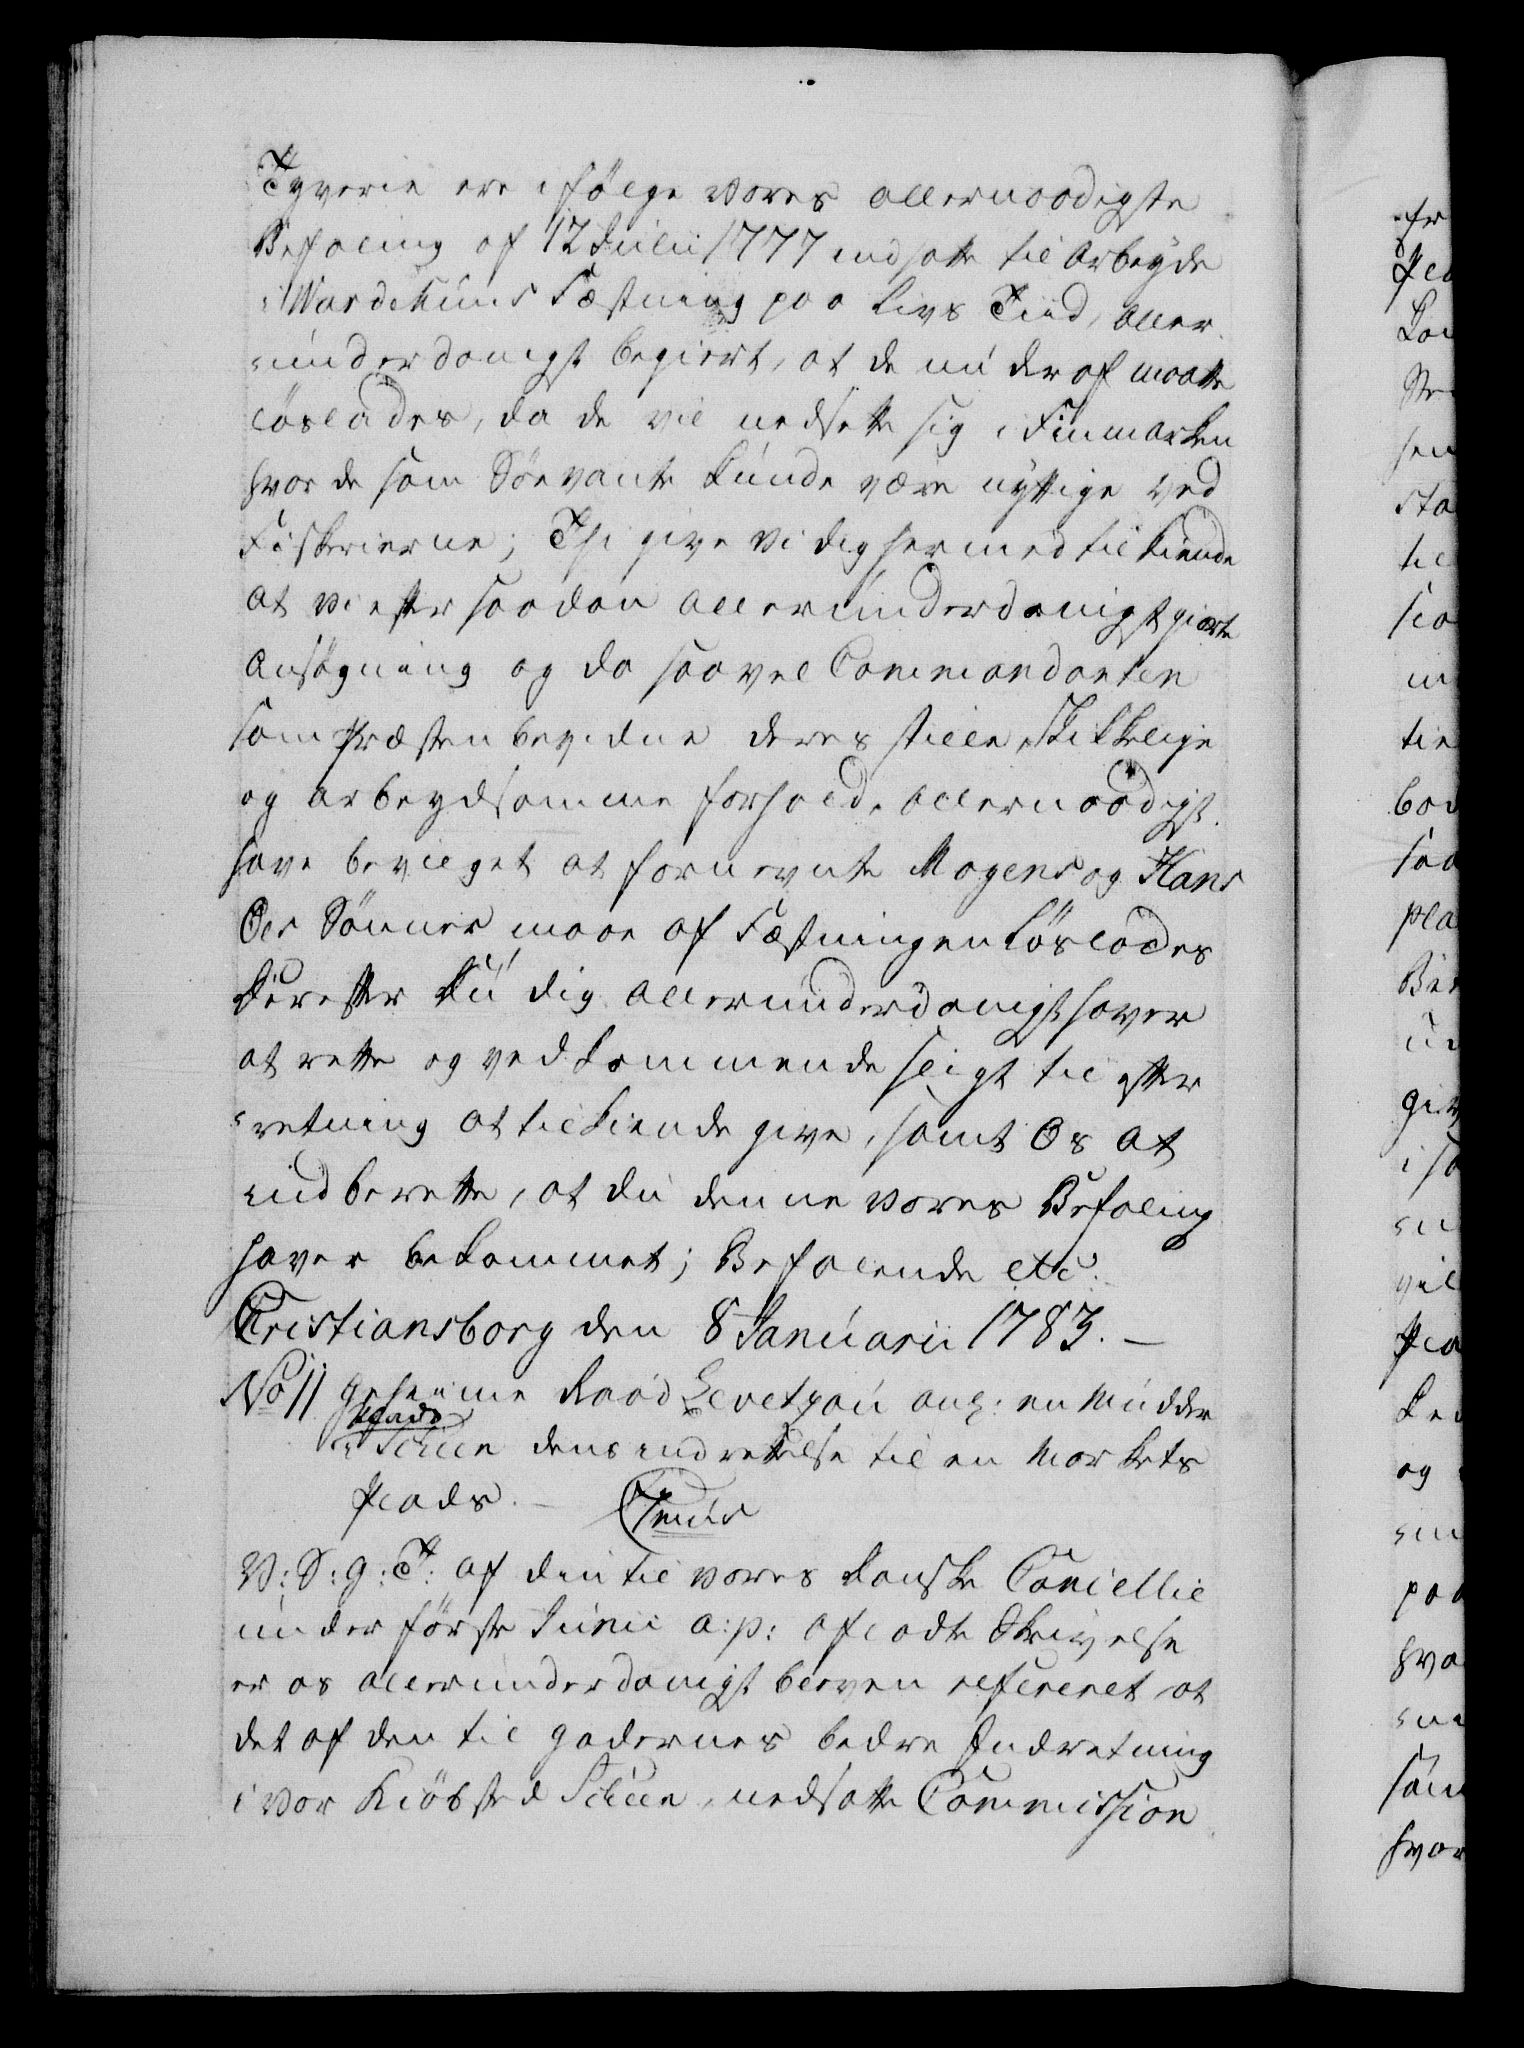 Tyverie ere ifølge vores allernaadigste
Befaling af 12 Julii 1777 indsatte til Arbeyde
i Wardehuus Fæstning paa Livs Tiid, aller-
underdanigst begiert, at de nu deraf maatte
løslades, da de vil nedsette sig i Finmarken
hvor de som Søevante kunde være nyttige ved
Fiskerierne; Thi give vi dig hermed til kiende
at vi efter saadan allerunderdanigst giorte
Ansøgning og da saavel Commandanten
som Præsten bevidne deres stille, skikkelige
og arbeydsomme forhold, allernaadigst
have bevilget at fornevnte Mogens og Hans
Ols Sønner maae af Fæstningen løslades
Derefter Du dig allerunderdanigst haver
at rette og vedkommende sligt til efter
-retning at tilkiende give, samt Os at
indberette, at du denne vores Befaling
haver bekommet; Befalende etc.
Cristiansborg den 8 Januarii 1783. —
No 11 Geheime Raad Levetzau ang: en Mudder
Plads
i Schien dens indrettelse til en Markets
Plads. —
V: S: g: T: af din til vores danske Cancellie
under første Junii a: p: afladte Skrivelse
er os allerunderdanigst bleven refereret at
det af den til gadernes bedre Indretning
i vor Kiøbsted Schien, nedsatte Commission